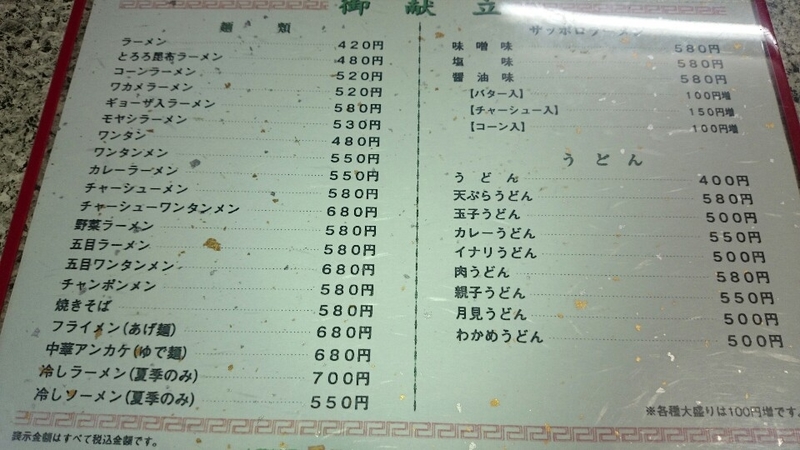 御献立
麺類
ラーメン 420円
とろろ昆布ラーメン 480円
コーンラーメン 520円
ワカメラーメン 520円
ギョーザ入ラーメン 580円
モヤシラーメン 530円
ワンタン 480円
ワンタンメン 550円
カレーラーメン 550円
チャーシューメン 580円
チャーシューワンタンメン 680円
野菜ラーメン 580円
五目ラーメン 580円
五目ワンタンメン 680円
チャンポンメン 580円
焼きそば 580円
フライメン(あげ麺) 680円
中華アンカケ(ゆで麺) 680円
冷しラーメン(夏季のみ) 700円
冷しソーメン(夏季のみ) 550円
サッポロラーメン
味噌味 580円
塩味 580円
醤油味 580円
【バター入】 100円増
【チャーシュー入】 150円増
【コーン入】 100円増
うどん
うどん 400円
天ぷらうどん 580円
玉子うどん 500円
カレーうどん 550円
イナリうどん 500円
肉うどん 580円
親子うどん 550円
月見うどん 500円
わかめうどん 500円
※各種大盛りは100円増です。
表示金額はすべて税込金額です。